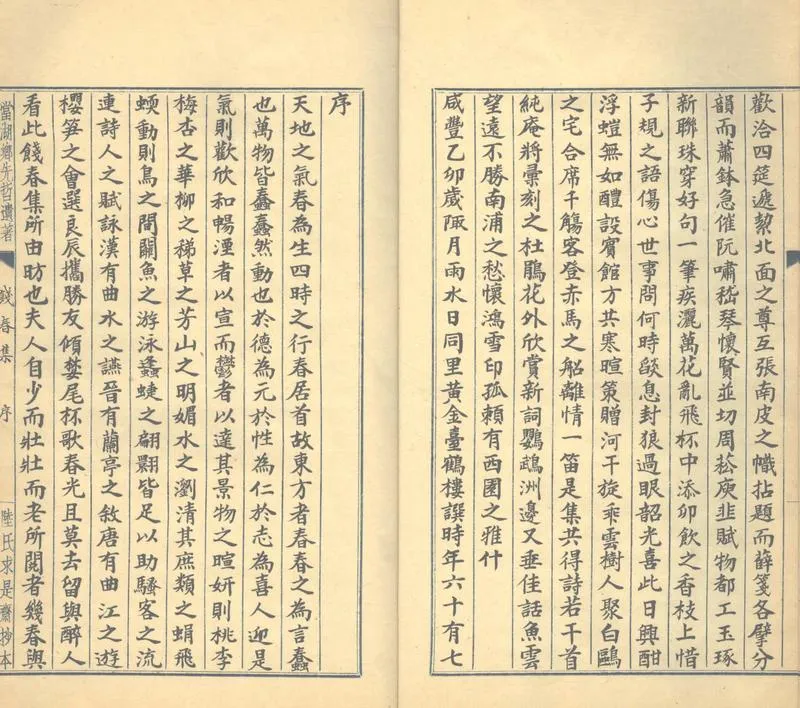 歡洽四筵遞挈北面之尊互張南皮之幟拈題而薛箋各擘分
韻而蕭鉢急催阮嘯嵇琴懷賢並切周菘庾韭賦物都工玉琢
新聯珠穿好句一筆疾灑萬花亂飛杯中添卯飲之香枝上惜
子規之語傷心世事問何時燄息封狼過眼韶光喜此日興酣
浮螘無如醴設賓館方共寒暄策贈河干旋乖雲樹人聚白鷗
之宅合席千觴客登赤馬之船離情一笛是集共得詩若干首
純庵將彙刻之杜鵑花外欣賞新詞鸚鵡洲邊又垂佳話魚雲
望遠不勝南浦之愁懷鴻雪印孤賴有西園之雅什
咸豐乙卯歲陬月雨水日同里黃金臺鶴樓譔時年六十有七
序
天地之氣春為生四時之行春居首故東方者春春之為言蠢
也萬物皆蠢蠢然動也於德為元於性為仁於志為喜人迎是
氣則歡欣和暢湮者以宣而鬱者以達其景物之暄妍則桃李
梅杏之華柳之稊草之芳山之明媚水之瀏清其庶類之蜎飛
蝡動則鳥之間關魚之游泳蠭蜨之翩翾皆足以助騷客之流
連詩人之賦詠漢有曲水之讌晉有蘭亭之敘唐有曲江之遊
櫻笋之會選良辰攜勝友傾婪尾杯歌春光且莫去留與醉人
看此餞春集所由昉也夫人自少而壯壯而老所閱者幾春與
當湖鄉先哲遺著
餞春集 序
陸氏求是齋抄本